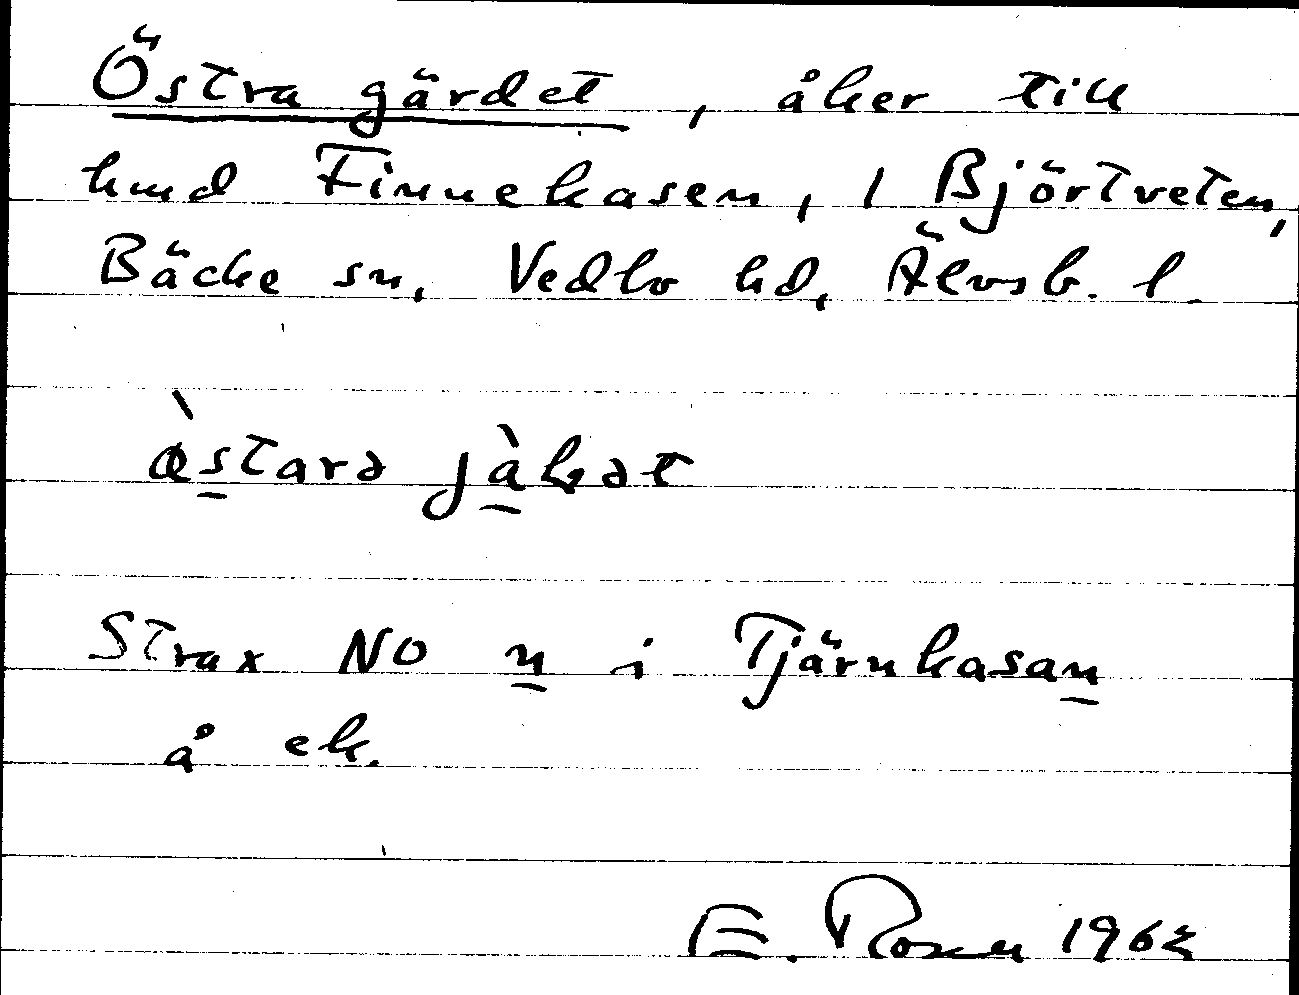 Östra gärdet, åker till
hmd Finnekasen, 1 Björtveten,
Bäcke sn, Vedbo hd, Älvsb. l.
östarə jàlət
Strax NO n i Tjärnkasan
å ek.
E. Rosen 1962